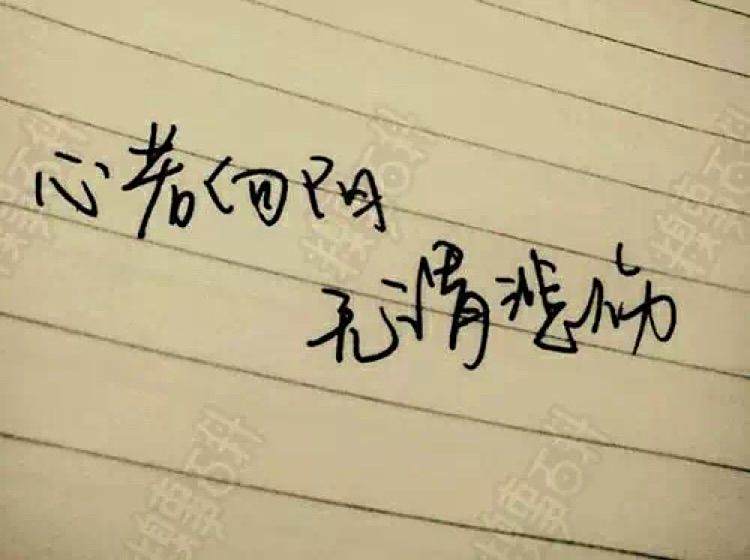 心若向阳
无谓悲伤